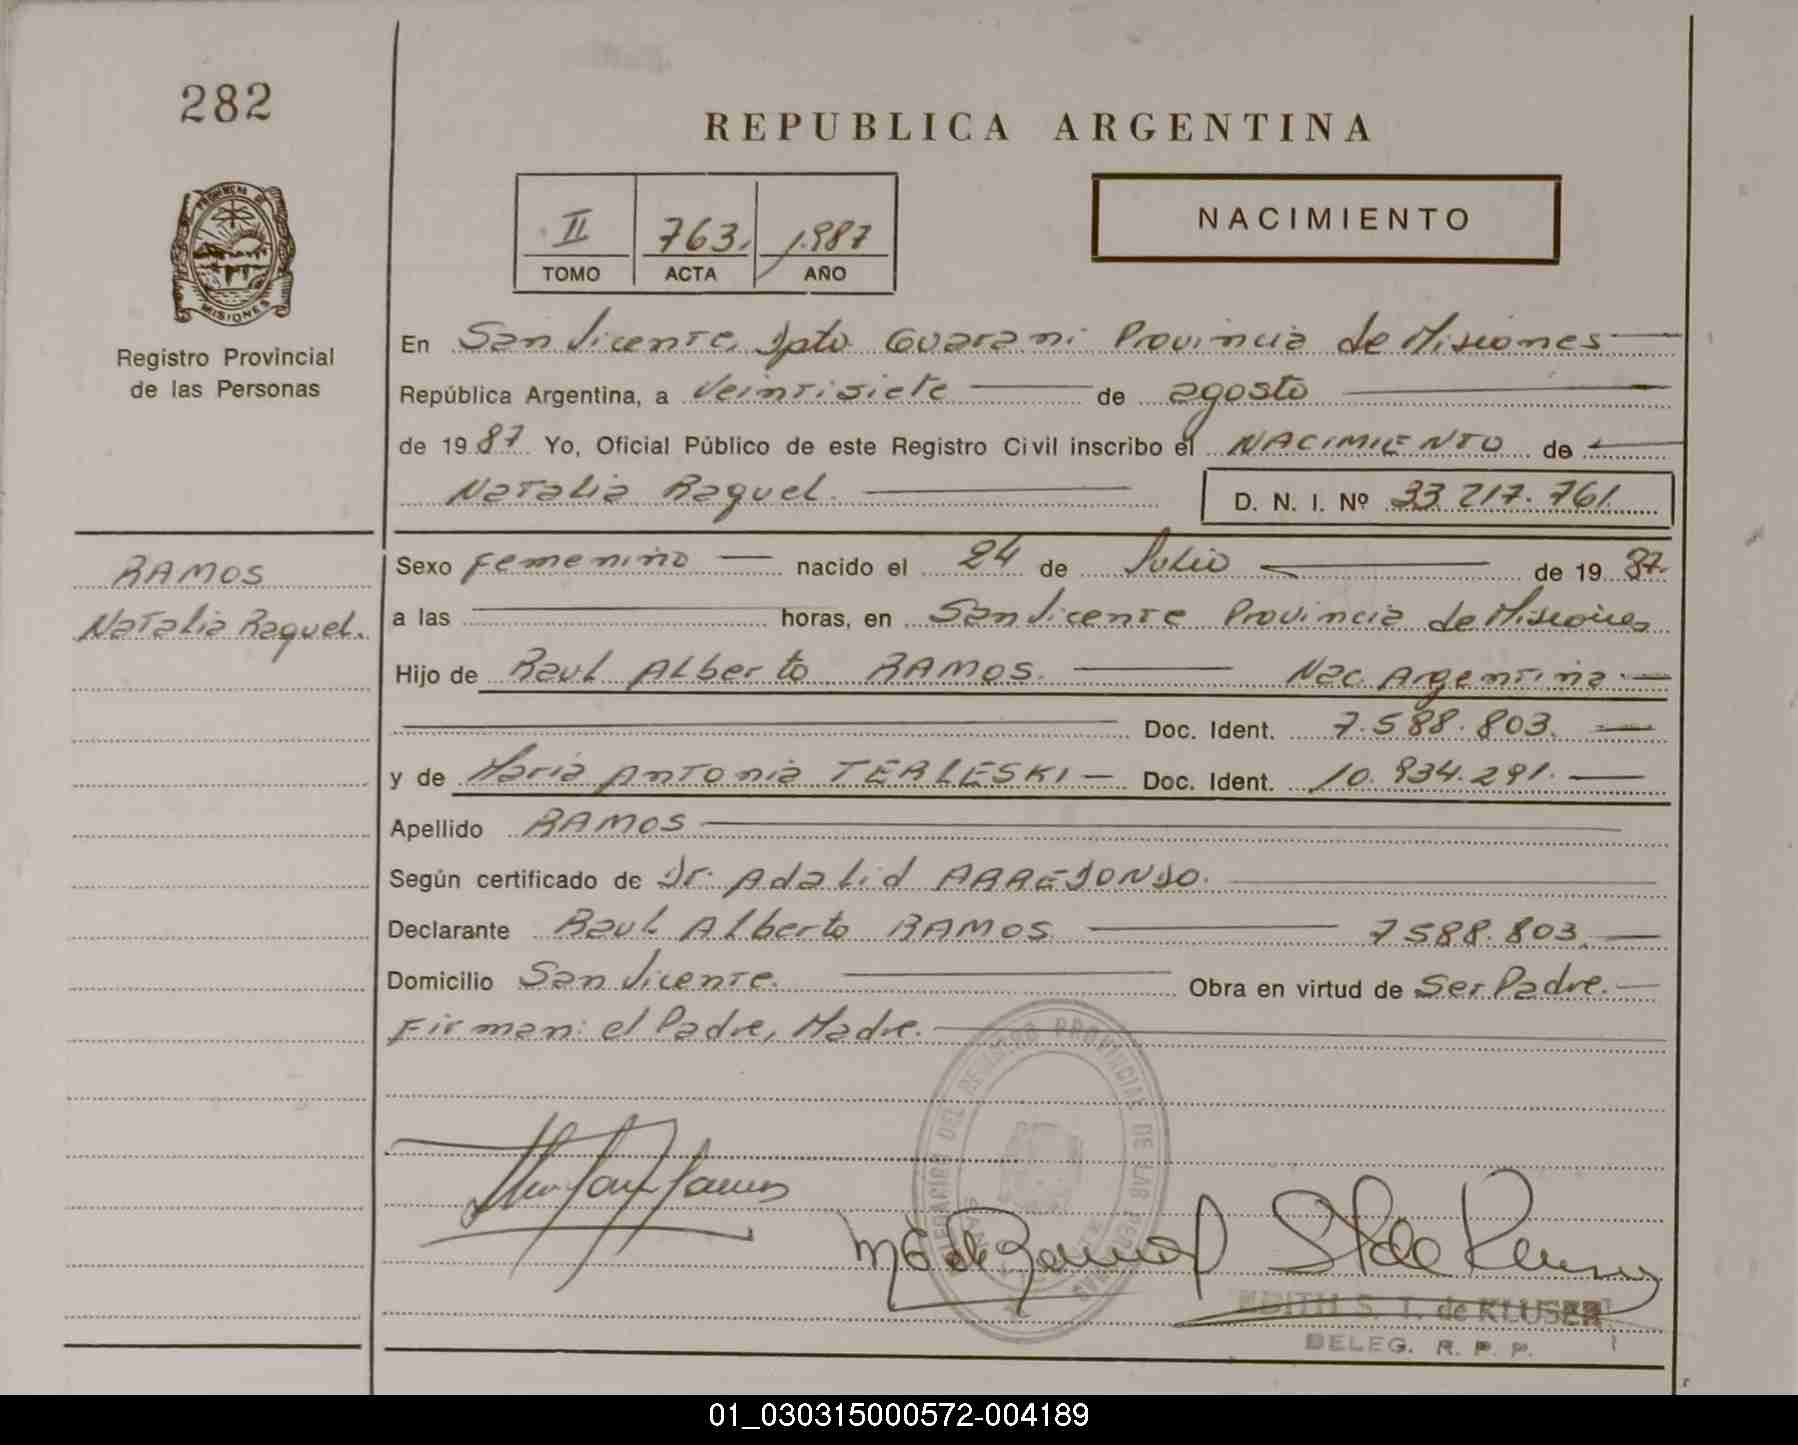 282
REPUBLICA ARGENTINA
II 763. 1.987
TOMO ACTA AÑO
NACIMIENTO
PROVINCIA DE
MISIONES
Registro Provincial
de las Personas
En San Vicente, Dpto Guarani Provincia de Misiones
República Argentina, a Veintisiete de agosto
de 1987 Yo, Oficial Público de este Registro Civil inscribo el NACIMIENTO de
Natalia Raquel. D. N. I. Nº 33.217.761.
RAMOS
Natalia Raquel.
Sexo Femenino nacido el 24 de Julio de 1987.
a las horas, en San Vicente Provincia de Misiones
Hijo de Raul Alberto RAMOS. Nac. Argentina
Doc. Ident. 7.588.803.
y de Maria Antonia TERLESKI Doc. Ident. 10.934.291.
Apellido RAMOS
Según certificado de Dr. Adalid ARREDONDO.
Declarante Raul Alberto RAMOS 7588.803.
Domicilio San Vicente. Obra en virtud de Ser Padre.
Firman: el Padre, Madre.
DEL REGISTRO PROVINCIAL DE LAS
EDITH S. T. de KLUSER
DELEG. R. P. P.
01_030315000572-004189